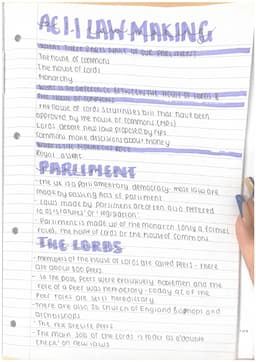 AC 1.1 LAW MAKING
What three parts make up our parliment
The house of commons
The house of Lords
Monarchy
What is the difference between the house of Lords &
the house of commons
The house of Lords scrutinises bills that have been
approved by the house of commons (MPs)
Lords debate new laws proposed by MPs.
Commons make discussions about money
What is the monarchs role
Royal assent.
PARLIMENT
- The UK is a parliamentary democracy- most laws are
made by passing acts of parliament.
- Laws made by parliament are often also reffered
to as 'statutes' or 'legislation'.
- Parliament is made up of the monarch (only a formal
role), the house of Lords or the house of commons.
THE LORDS
- members of the house of Lords are called peers - there
are about 800 peers
- In the past, peers were exclusively noblemen and the
role of a peer was hereditary - today 92 of the
peer roles are still hereditary.
- There are also 26 church of England Bishops and
archbishops
- The rest are life peers.
- The main job of the Lords is to act as a 'double
check' on new laws